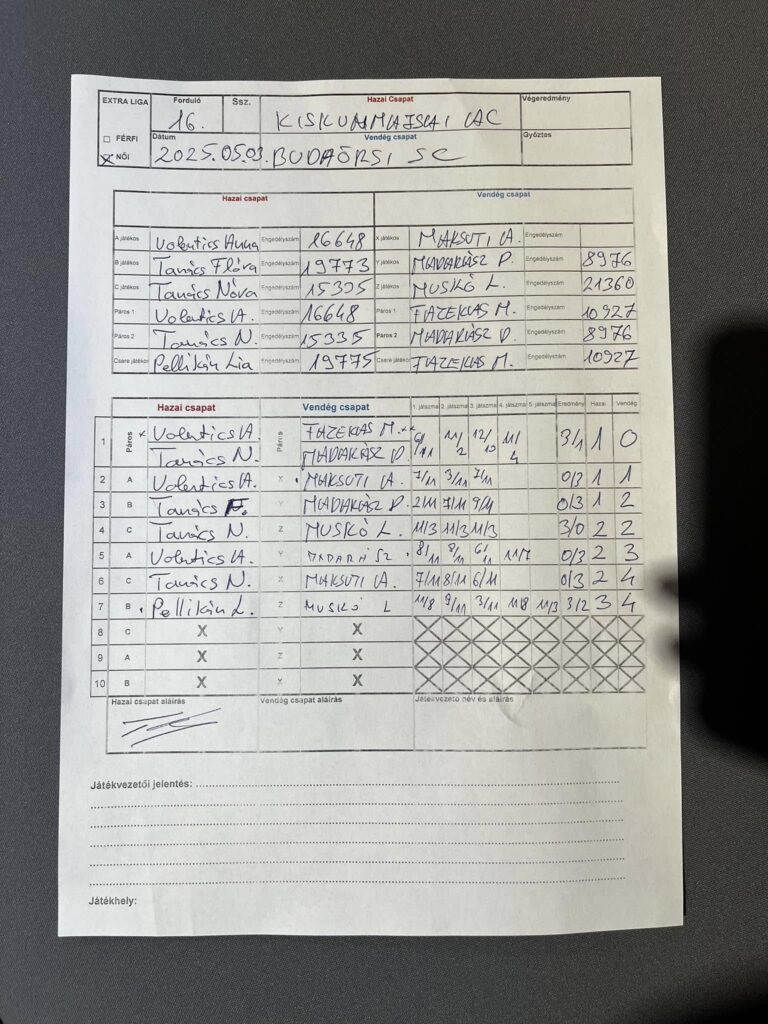 EXTRA LIGA Forduló Ssz. Hazai Csapat Végeredmény
16. KISKUNMAJSAI UAC
□ FÉRFI Dátum Vendég csapat Győztes
☒ NŐI 2025.05.03. BUDAÖRSI SC
Hazai csapat Vendég csapat
A játékos Volentics Anna Engedélyszám 16648 X játékos MAKSUTI A. Engedélyszám
B játékos Tanács Flóra Engedélyszám 19773 Y játékos MADARÁSZ D. Engedélyszám 8976
C játékos Tanács Nóra Engedélyszám 15335 Z játékos MUSKÓ L. Engedélyszám 21360
Páros 1 Volentics A. Engedélyszám 16648 Páros 1 FAZEKAS M. Engedélyszám 10927
Páros 2 Tanács N. Engedélyszám 15335 Páros 2 MADARÁSZ D. Engedélyszám 8976
Csere játékos Pellikán Lia Engedélyszám 19775 Csere játékos FAZEKAS M. Engedélyszám 10927
Hazai csapat Vendég csapat 1. játszma 2. játszma 3. játszma 4. játszma 5. játszma Eredmény Hazai Vendég
1 Páros Volentics A. Páros FAZEKAS M. 6/11 11/2 12/10 11/4 3/1 1 0
Tanács N. MADARÁSZ D.
2 A Volentics A. X MAKSUTI A. 7/11 3/11 7/11 0/3 1 1
3 B Tanács F. Y MADARÁSZ D. 2/11 7/11 9/11 0/3 1 2
4 C Tanács N. Z MUSKÓ L. 11/3 11/3 11/3 3/0 2 2
5 A Volentics A. Y MADARÁSZ 8/11 8/11 6/11 11/7 0/3 2 3
6 C Tanács N. X MAKSUTI A. 7/11 8/11 6/11 0/3 2 4
7 B Pellikán L. Z MUSKÓ L 11/8 9/11 3/11 11/8 11/3 3/2 3 4
8 C X Y X
9 A X Z X
10 B X X X
Hazai csapat aláírás Vendég csapat aláírás Játékvezető név és aláírás
Játékvezetői jelentés:
Játékhely: